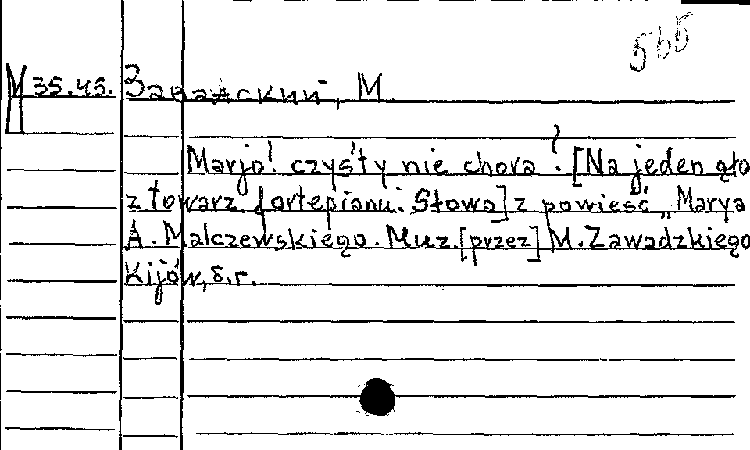 565
М 35.45. Завадский, М.
Marjo! czyśty nie chora? [Na jeden gło
z towarz. fortepianu. Słowa] z powieść „Marya
A. Malczewskiego. Muz. [przez] M. Zawadzkiego
Kijów, s.r.